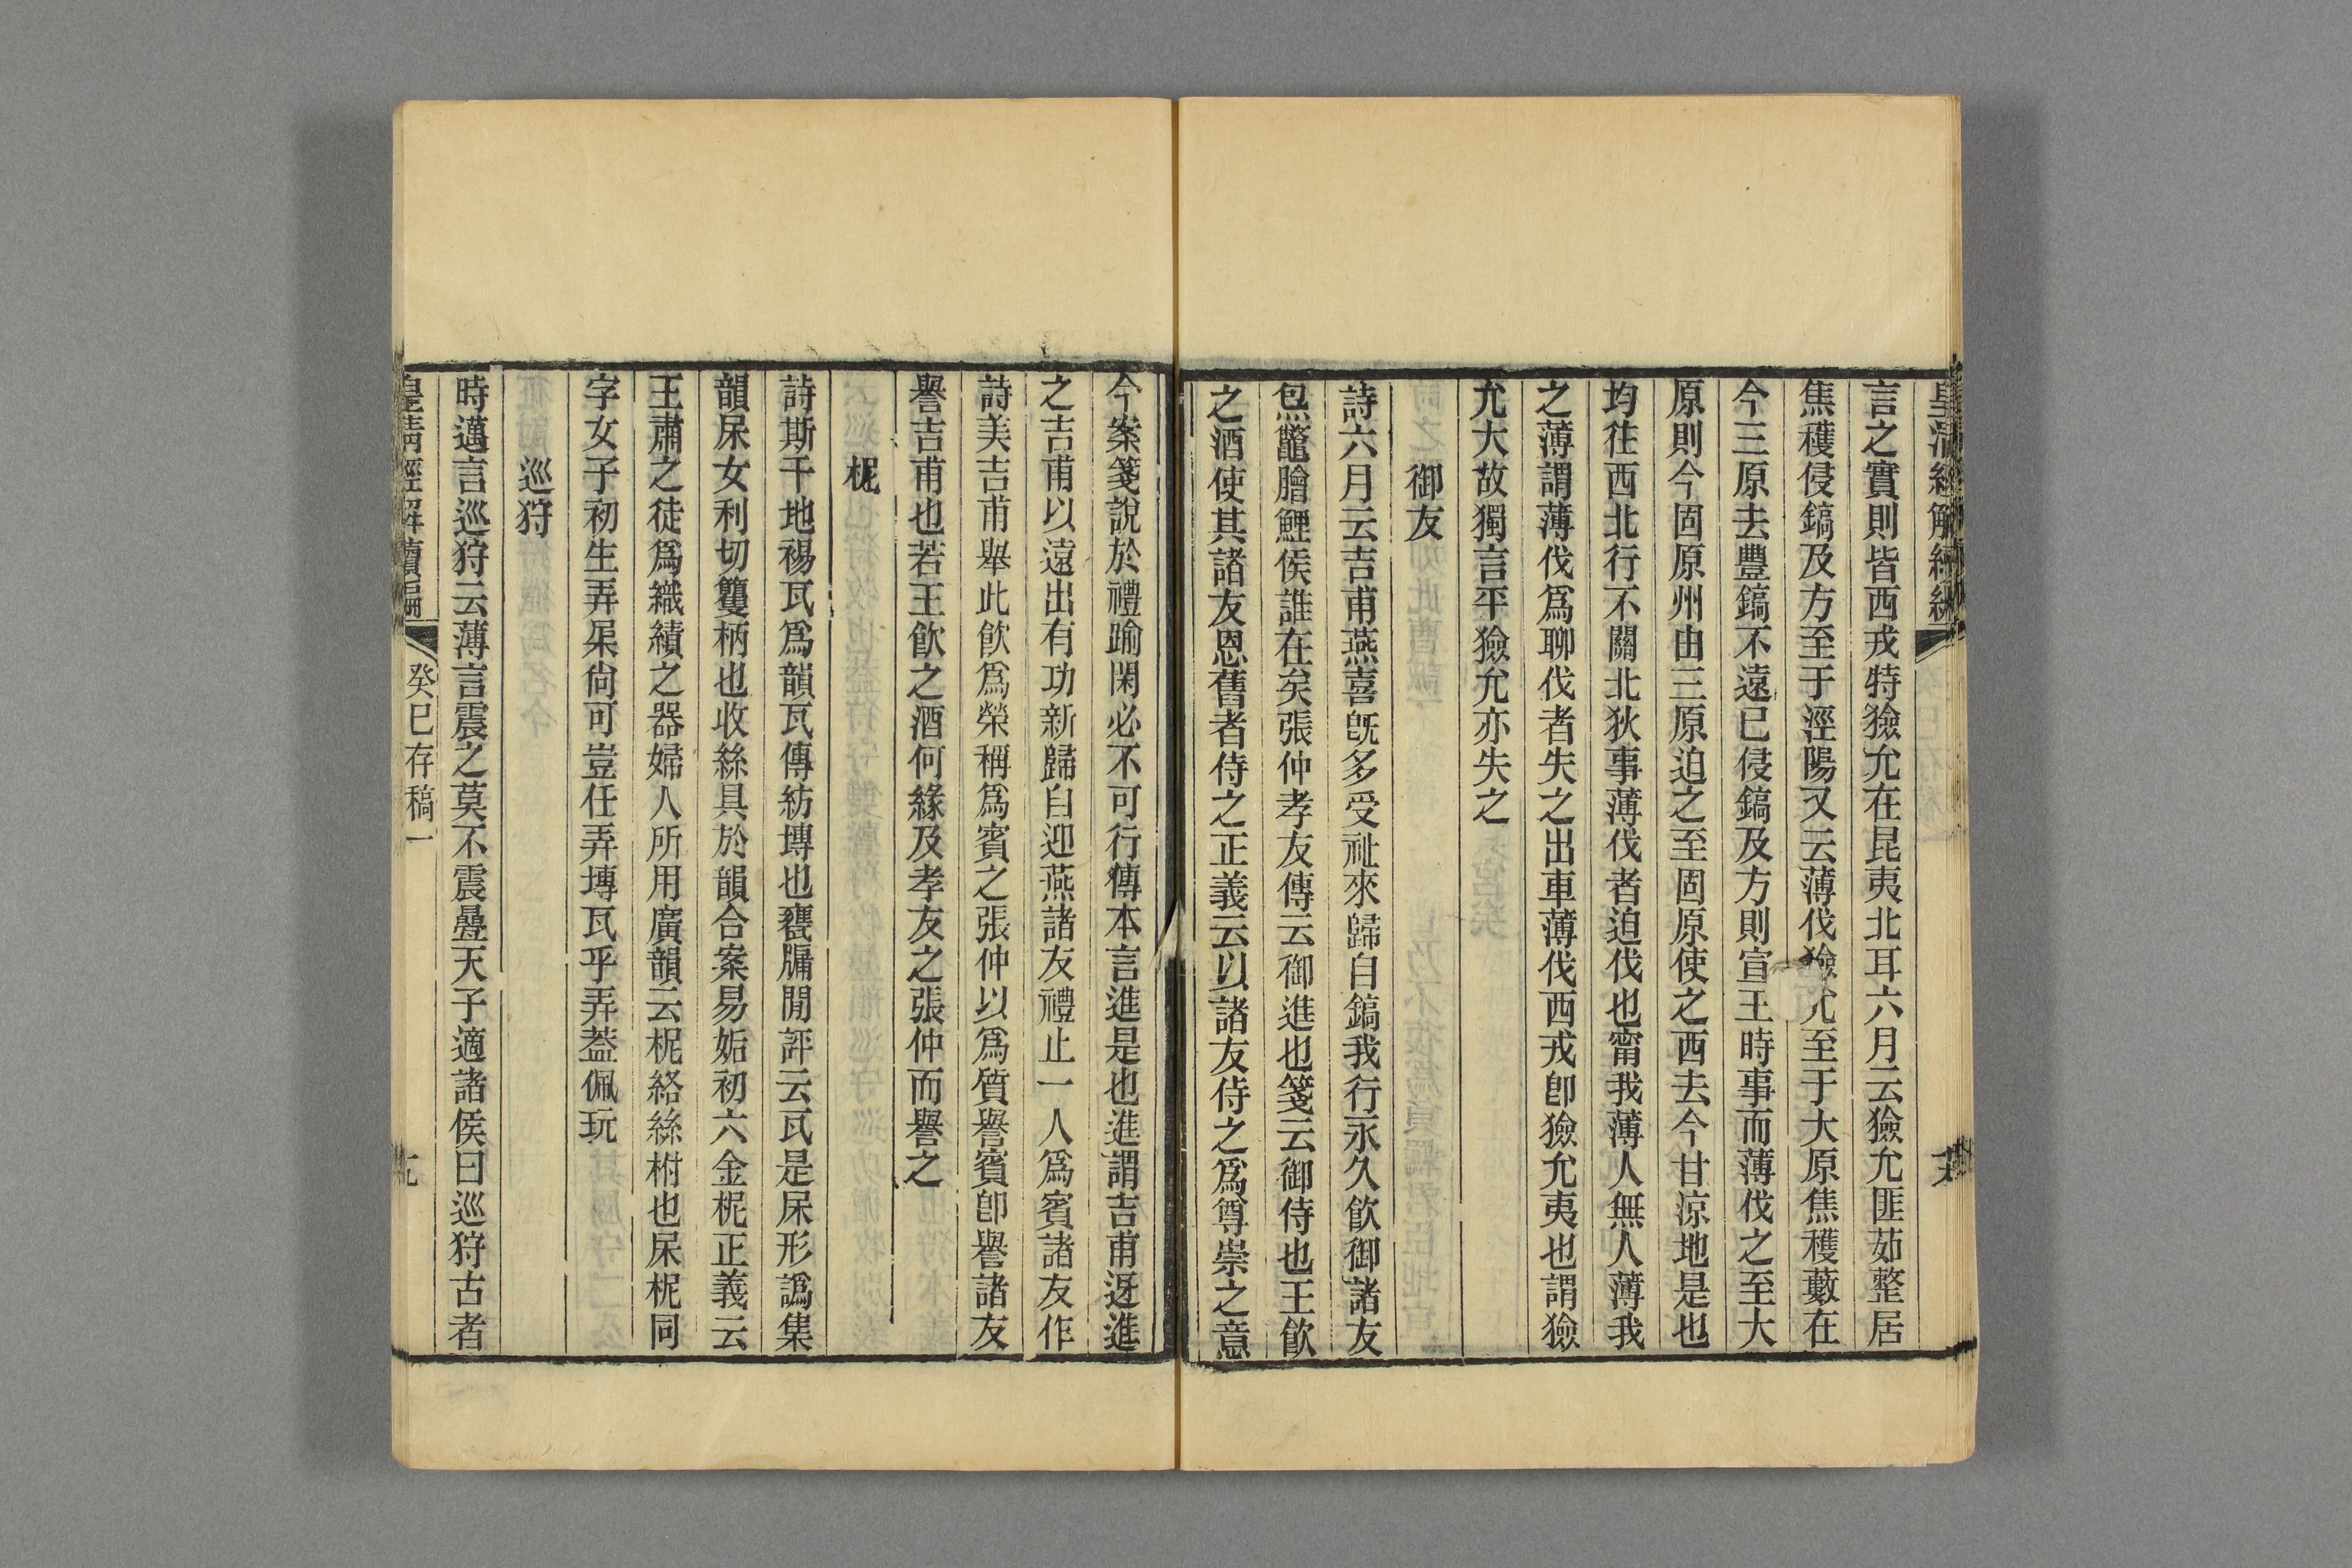 皇清經解續編
言之實則皆西戎特獫允在昆夷北耳六月云獫允匪茹整居
焦穫侵鎬及方至于涇陽又云薄伐獫允至于大原焦穫藪在
今三原去豐鎬不遠已侵鎬及方則宣王時事而薄伐之至大
原則今固原州由三原迫之至固原使之西去今甘凉地是也
均往西北行不關北狄事薄伐者迫伐也甯我薄人無人薄我
之薄謂薄伐爲聊伐者失之出車薄伐西戎卽獫允夷也謂獫
允大故獨言平獫允亦失之
御友
詩六月云吉甫燕喜旣多受祉來歸自鎬我行永久飮御諸友
炰鼈膾鯉侯誰在矣張仲孝友傳云御進也箋云御侍也王飮
之酒使其諸友恩舊者侍之正義云以諸友侍之爲尊崇之意
今案箋說於禮踰閑必不可行傳本言進是也進謂吉甫迓進
之吉甫以遠出有功新歸自迎燕諸友禮止一人爲賓諸友作
詩美吉甫舉此飮爲榮稱爲賓之張仲以爲質譽賓卽譽諸友
譽吉甫也若王飮之酒何緣及孝友之張仲而譽之
柅
詩斯干地裼瓦爲韻瓦傳紡塼也甕牖閒評云瓦是㞎形譌集
韻㞎女利切籰柄也收絲具於韻合案易姤初六金柅正義云
王肅之徒爲織績之器婦人所用廣韻云柅絡絲柎也㞎柅同
字女子初生弄㞎尙可豈任弄塼瓦乎弄葢佩玩
巡狩
時邁言巡狩云薄言震之莫不震疊天子適諸侯曰巡狩古者
皇淸經解續編 癸巳存稿一